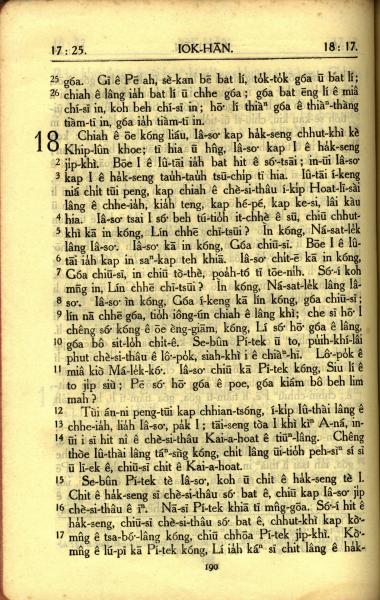 17 : 25.   IOK-HĀN.   18 : 17.
25 góa. Gi ê Pē ah, sè-kan bē bat lí, to̍k-to̍k góa ū bat lí;
26 chiah ê lâng ia̍h bat lí ū chhe góa; góa bat ēng lí ê miâ
chí-sī in, koh beh chí-sī in; hō͘ lí thiàⁿ góa ê thiàⁿ-thàng
tiàm-tī in, góa ia̍h tiàm-tī in.
18 Chiah ê ōe kóng liáu, Iâ-so͘ kap ha̍k-seng chhut-khì kè
Khip-lûn khoe; tī hia ū hn̂g, Iâ-so͘ kap I ê ha̍k-seng
2 ji̍p-khì. Bōe I ê Iû-tāi ia̍h bat hit ê só͘-tsāi; in-ūi Iâ-so͘
3 kap I ê ha̍k-seng ta̍uh-ta̍uh tsū-chi̍p tī hia. Iû-tāi í-keng
niá chi̍t tūi peng, kap chiah ê chè-si-thâu í-ki̍p Hoat-lī-sài
lâng ê chhe-ia̍h, kia̍h teng, kap hé-pé, kap ke-si, lâi kàu
4 hia. Iâ-so͘ tsai I só͘ beh tú-tio̍h it-chhè ê sū, chiū chhut-
5 khì kā in kóng, Lín chhē chī-tsūi? In kóng, Ná-sat-le̍k
lâng Iâ-so͘. Iâ-so͘ kā in kóng, Góa chiū-sī. Bōe I ê Iû-
6 tāi ia̍h kap in saⁿ-kap teh khiā. Iâ-so͘ chi̍t-ē kā in kóng,
7 Góa chiū-sī, in chiū tò-thè, poa̍h-tó tī tōe-nih. Só͘-í koh
mn̄g in, Lín chhē chī-tsūi? In kóng, Ná-sat-le̍k lâng Iâ-
8 so͘. Iâ-so͘ ìn kóng, Góa í-keng kā lín kóng, góa chiū-sī;
9 lín nā chhē góa, tio̍h iông-ún chiah ê lâng khì; che sī hō͘ I
chêng só͘ kóng ê ōe èng-giām, kóng, Lí só͘ hō͘ góa ê lâng,
10 góa bô sit-lo̍h chi̍t-ê. Se-bûn Pí-tek ū to, pu̍ih-khí-lâi
phut chè-si-thâu ê lô͘-po̍k, siah-khì i ê chiàⁿ-hī. Lô͘-po̍k ê
11 miâ kiò Má-le̍k-kó͘. Iâ-so͘ chiū kā Pí-tek kóng, Siu lí ê
to ji̍p siù; Pē só͘ hō͘ góa ê poe, góa kiám bô beh lim
mah?
12 Tùi án-ni peng-tūi kap chhian-tsóng, í-ki̍p Iû-thài lâng ê
13 chhe-ia̍h, lia̍h Iâ-so͘, pa̍k I; tāi-seng tòa I khì kìⁿ A-ná, in-
14 ūi i sī hit nî ê chè-si-thâu Kai-a-hoat ê tiūⁿ-lâng. Chêng
thòe Iû-thài lâng táⁿ-sǹg kóng, chi̍t lâng ūi-tio̍h peh-sìⁿ sí sī
ū lī-ek ê, chiū-sī chit ê Kai-a-hoat.
15 Se-bûn Pí-tek tè Iâ-so͘, koh ū chi̍t ê ha̍k-seng tè I.
Chit ê ha̍k-seng sī chè-si-thâu só͘ bat ê, chiū kap Iâ-so͘ ji̍p
16 chè-si-thâu ê iⁿ. Nā-sī Pí-tek khiā tī mn̂g-góa. Só͘-í hit ê
ha̍k-seng, chiū-sī chè-si-thâu só͘ bat ê, chhut-khì kap kò͘-
17 mn̂g ê tsa-bó͘-lâng kóng, chiū chhōa Pí-tek ji̍p-khì. Kò͘-
mn̂g ê lú-pī kā Pí-tek kóng, Lí ia̍h káⁿ sī chit lâng ê ha̍k-
190